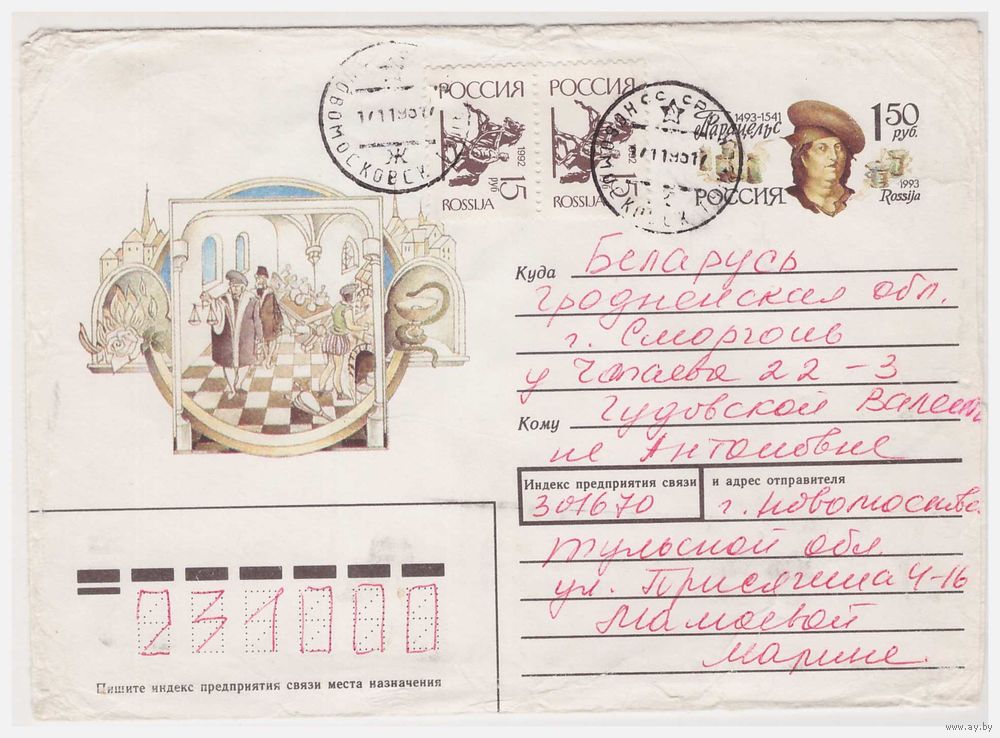 НОВОМОСКОВСК
17119517
Ж
РОССИЯ
1992
15 РУБ
ROSSIJA
РОССИЯ
1992
15
ROSSIJA
17119517
1493-1541
Парацельс
РОССИЯ
1 50 руб.
1993
Rossija
Куда Беларусь
Гродненская обл.
г. Сморгонь
у Чапаева 22 - 3
Кому Гудовской Валент
не Антоновне
Индекс предприятия связи и адрес отправителя
301670 г. Новомосковс
Тульской обл.
ул. Присягина 4-16
Мамоевой
Марине.
231000
Пишите индекс предприятия связи места назначения
www.ay.by